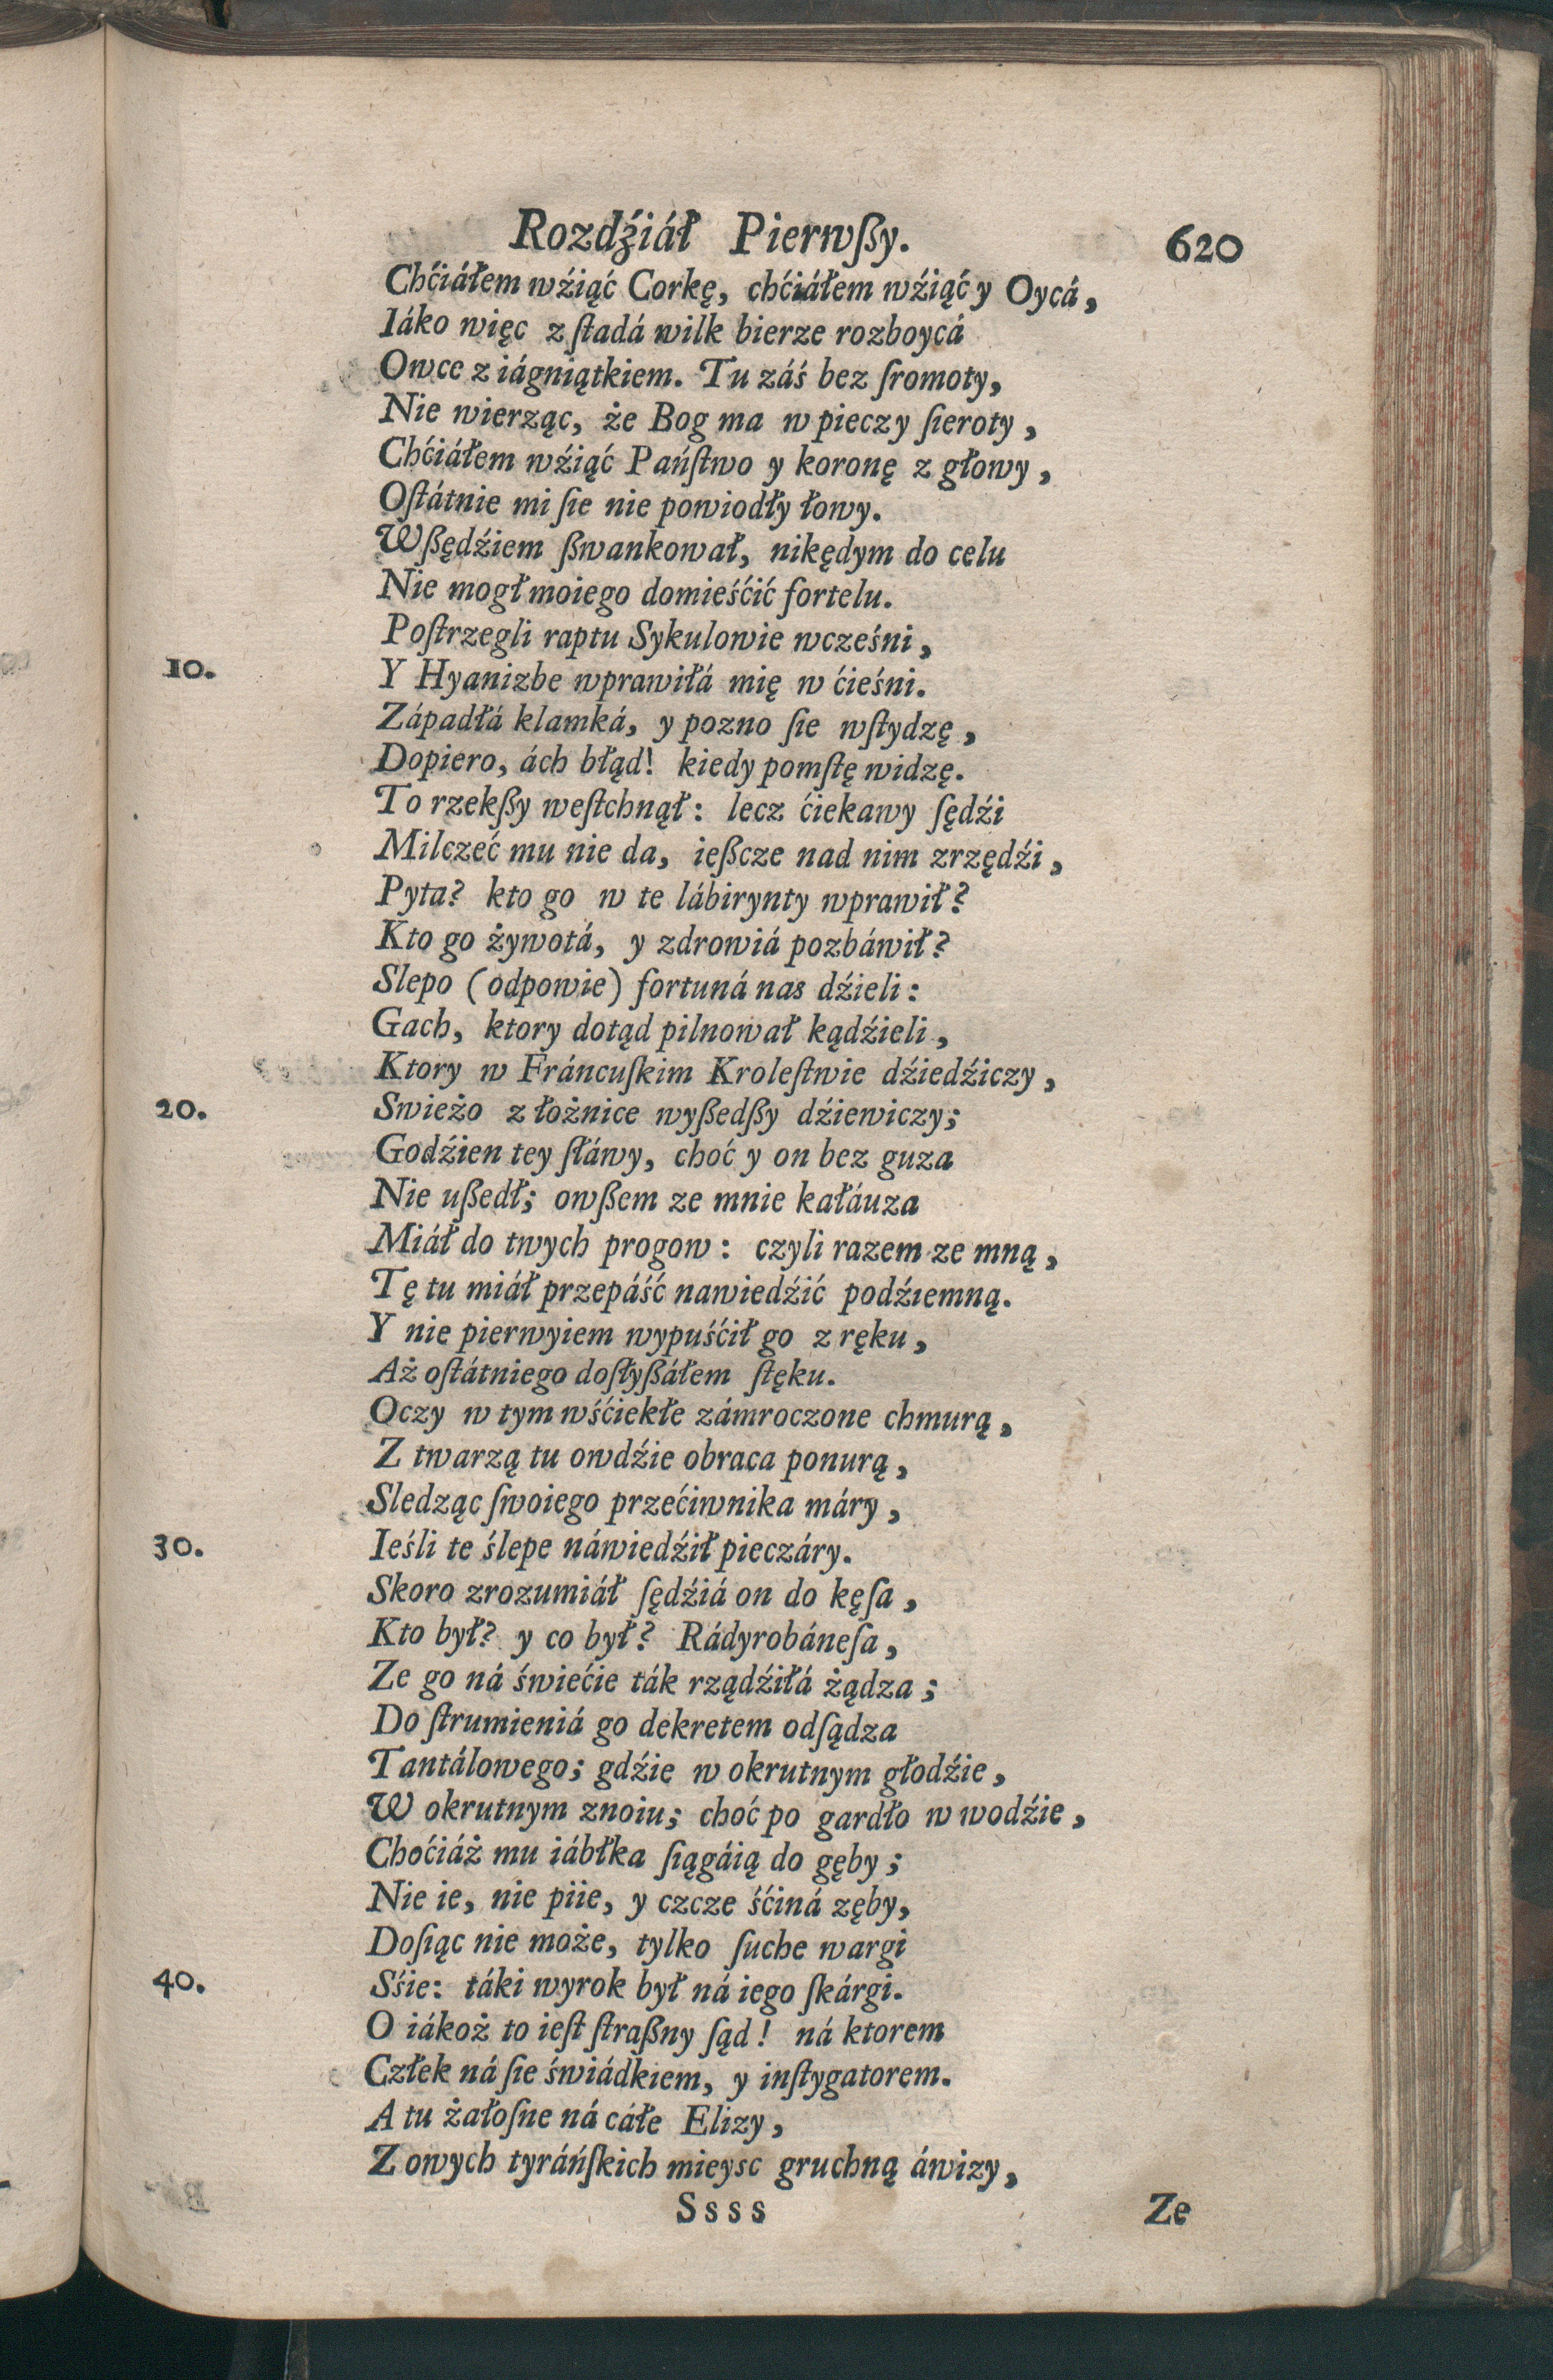 Rozdźiáł Pierwßy. 620
Chćiáłem wźiąć Corkę, chćiáłem wźiąć y Oycá,
Iáko więc z ſtadá wilk bierze rozboycá
Owce z iágniątkiem. Tu záś bez ſromoty,
Nie wierząc, że Bog ma w pieczy ſieroty,
Chćiáłem wźiąć Pańſtwo y koronę z głowy,
Oſtátnie mi ſie nie powiodły łowy.
Wßędźiem ßwankował, nikędym do celu
Nie mogł moiego domieśćić fortelu.
Poſtrzegli raptu Sykulowie wcześni,
10. Y Hyanizbe wprawiłá mię w ćieśni.
Západłá klamká, y pozno ſie wſtydzę,
Dopiero, ách błąd! kiedy pomſtę widzę.
To rzekßy weſtchnął: lecz ćiekawy ſędźi
Milczeć mu nie da, ießcze nad nim zrzędźi,
Pyta? kto go w te lábirynty wprawił?
Kto go żywotá, y zdrowiá pozbáwił?
Slepo (odpowie) fortuná nas dźieli:
Gach, ktory dotąd pilnował kądźieli,
Ktory w Fráncuſkim Kroleſtwie dźiedźiczy,
20. Swieżo z łożnice wyßedßy dźiewiczy;
Godźien tey ſłáwy, choć y on bez guza
Nie ußedł; owßem ze mnie kałáuza
Miáł do twych progow: czyli razem ze mną,
Tę tu miáł przepáść nawiedźić podźiemną.
Y nie pierwyiem wypuśćił go z ręku,
Aż oſtátniego doſłyßáłem ſtęku.
Oczy w tym wśćiekłe zámroczone chmurą,
Z twarzą tu owdźie obraca ponurą,
Sledząc ſwoiego przećiwnika máry,
30. Ieśli te ślepe náwiedźił pieczáry.
Skoro zrozumiáł ſędźiá on do kęſa,
Kto był? y co był? Rádyrobáneſa,
Ze go ná świećie ták rządźiłá żądza;
Do ſtrumieniá go dekretem odſądza
Tantálowego; gdźie w okrutnym głodźie,
W okrutnym znoiu; choć po gardło w wodźie,
Choćiáż mu iábłka ſiągáią do gęby;
Nie ie, nie piie, y czcze śćiná zęby,
Doſiąc nie może, tylko ſuche wargi
40. Sśie: táki wyrok był ná iego ſkárgi.
O iákoż to ieſt ſtraßny ſąd! ná ktorem
Człek ná ſie świádkiem, y inſtygatorem.
A tu żałoſne ná cáłe Elizy,
Z owych tyráńſkich mieysc gruchną áwizy,
Ssss Ze